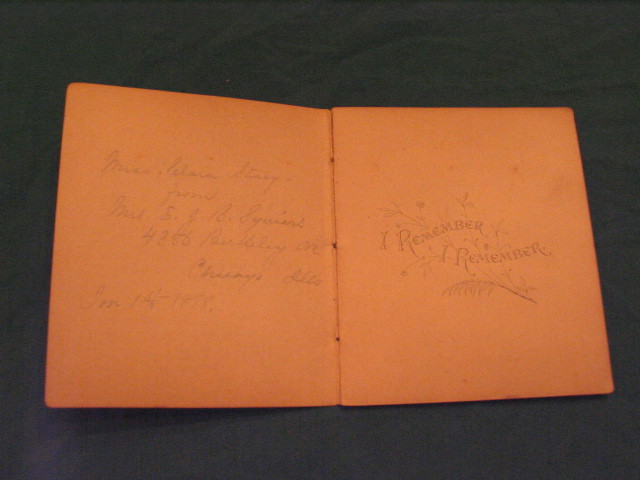 Miss Clara
from
Mrs. E. J. R. Squiers
4256 Berkeley Av
Chicago Ills
Jan 1st
I REMEMBER
I REMEMBER.